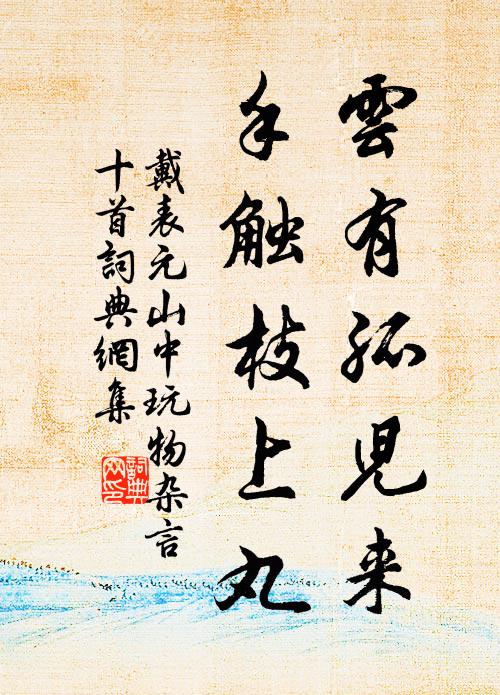 雲有孤児来
手触枝上丸
戴表元山中玩物杂言
十首詞典網集
詞典
网印